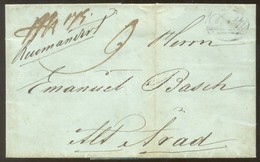 Recomandirt
Herrn
Emanuel Basch
Alt Arad